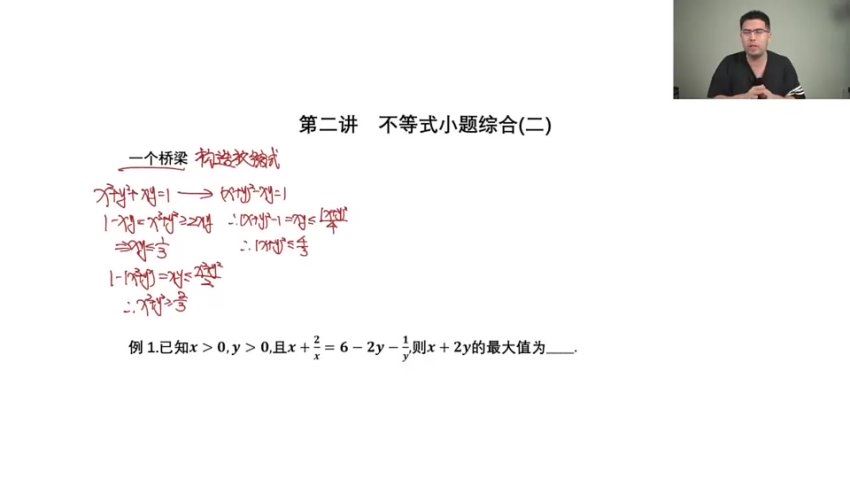 第二讲 不等式小题综合(二)
一个桥梁 构造放缩式
x²+y²+xy=1 → (x+y)²-xy=1
1-xy=x²+y²≥2xy ∴(x+y)²-1=xy≤(x+y)²/4
⇒xy≤1/3 ∴(x+y)²≤4/3
1-(x²+y²)=xy≤x²+y²/2
∴x²+y²≥2/3
例 1.已知x > 0, y > 0,且x + 2/x = 6 − 2y − 1/y,则x + 2y的最大值为____.